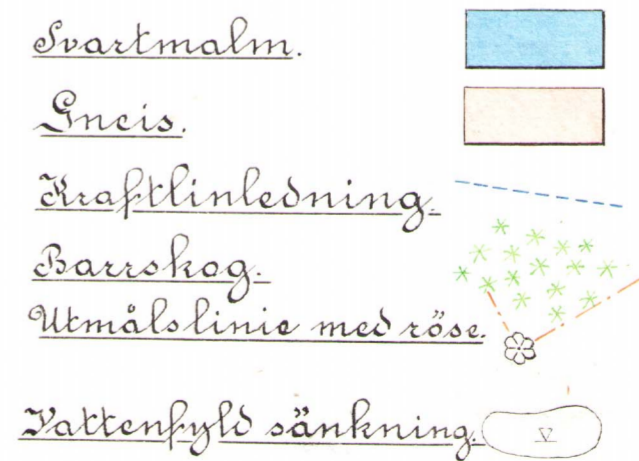 Svartmalm.
Gneis.
Kraftlinledning.
Barrskog.
Utmålslinie med röse.
Vattenfyld sänkning.
V